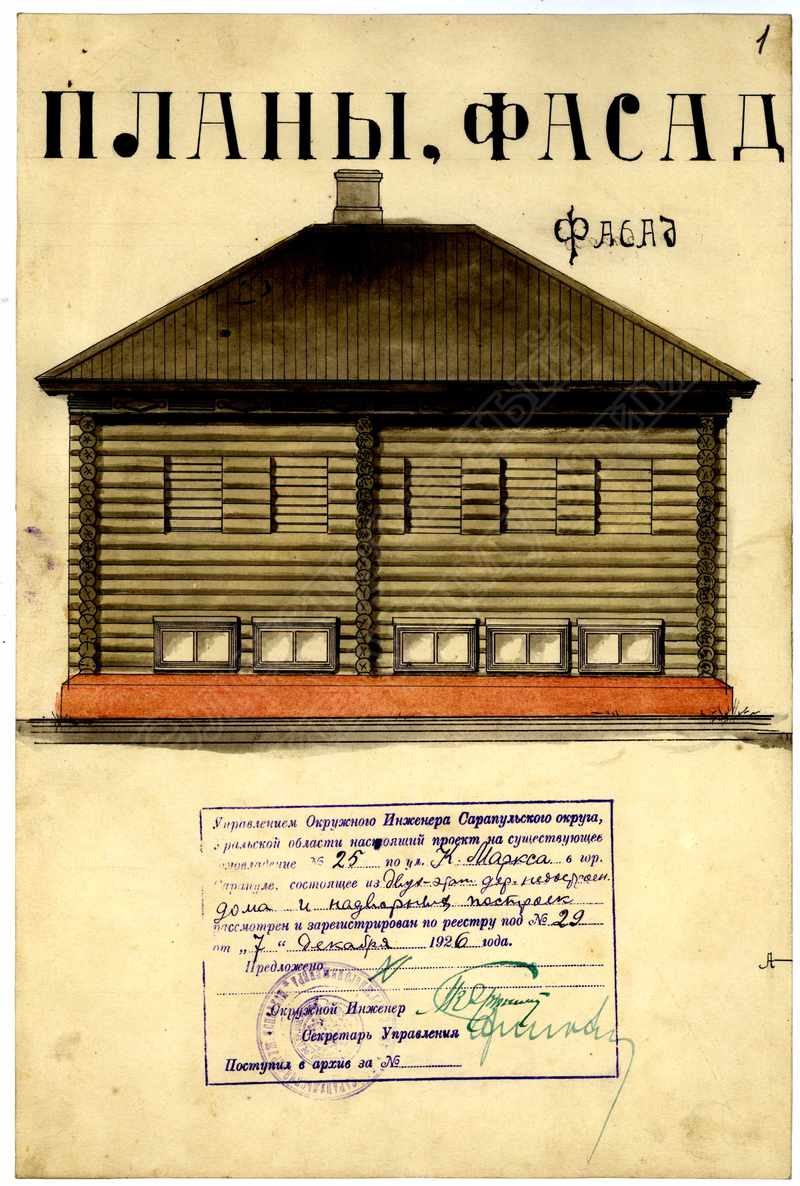 1
ПЛАНЫ, ФАСАД
Фасад
Управлением Окружного Инженера Сарапульского округа,
Уральской области настоящий проект на существующее
домовладение № 25 по ул. К. Маркса в гор.
Сарапуле, состоящее из двух-этаж. дер. недостроен.
дома и надворных построек
рассмотрен и зарегистрирован по реестру под № 29
от „7“ декабря 1926 года.
Предложено
Окружной Инженер
Секретарь Управления
Поступил в архив за №
А